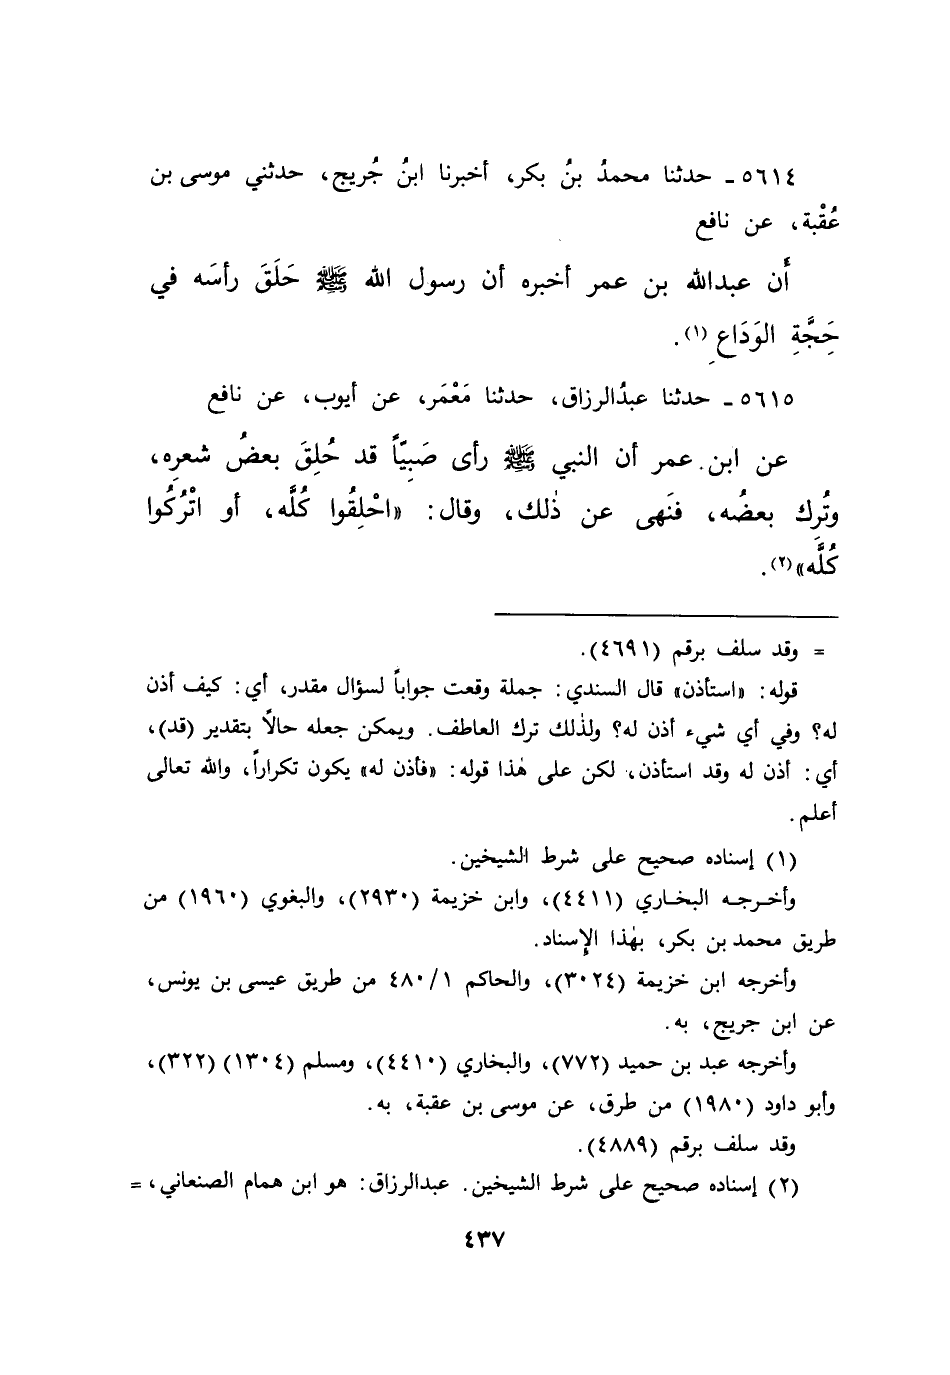 ٥٦١٤ ـ حدثنا محمدُ بنُ بكر، أخبرنا ابنُ جُريج، حدثني موسى بن
عُقْبة، عن نافع
أَن عبدالله بن عمر أخبره أن رسول الله ﷺ حَلَقَ رأسَه في
حَِجَّةِ الوَدَاعِ (١).
٥٦١٥ ـ حدثنا عبدُالرزاق، حدثنا مَعْمَر، عن أيوب، عن نافع
عن ابن عمر أن النبي ﷺ رأى صَبِيّاً قد حُلِقَ بعضُ شعرِه،
وتُرِك بعضُه، فنَهى عن ذٰلك، وقال: «احْلِقُوا كُلَّه، أو اتْرُكُوا
كُلَّه»(٢).
= وقد سلف برقم (٤٦٩١).
قوله: «استأذن» قال السندي: جملة وقعت جواباً لسؤال مقدر، أي: كيف أذن
له؟ وفي أي شيء أذن له؟ ولذٰلك ترك العاطف. ويمكن جعله حالاً بتقدير (قد)،
أي: أذن له وقد استأذن، لكن على هٰذا قوله: «فأذن له» يكون تكراراً، والله تعالى
أعلم.
(١) إسناده صحيح على شرط الشيخين.
وأخرجه البخاري (٤٤١١)، وابن خزيمة (٢٩٣٠)، والبغوي (١٩٦٠) من
طريق محمد بن بكر، بهٰذا الإسناد.
وأخرجه ابن خزيمة (٣٠٢٤)، والحاكم ٤٨٠/١ من طريق عيسى بن يونس،
عن ابن جريج، به.
وأخرجه عبد بن حميد (٧٧٢)، والبخاري (٤٤١٠)، ومسلم (١٣٠٤) (٣٢٢)،
وأبو داود (١٩٨٠) من طرق، عن موسى بن عقبة، به.
وقد سلف برقم (٤٨٨٩).
(٢) إسناده صحيح على شرط الشيخين. عبدالرزاق: هو ابن همام الصنعاني، =
٤٣٧